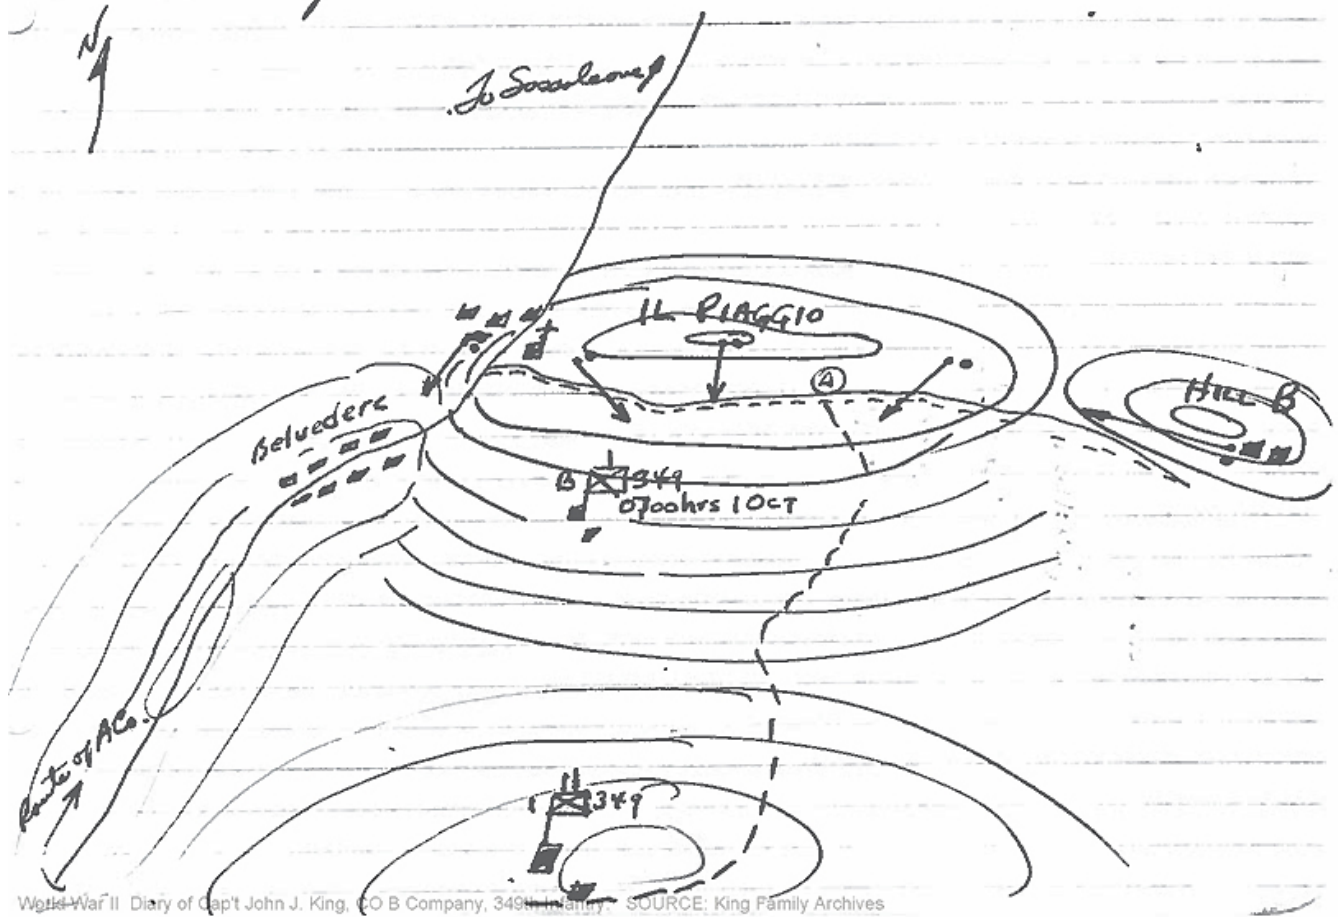 N
IL PIAGGIO
A
HILL B
Belvedere
B 349
0700hrs 1 OCT
Route of A Co.
1 349
World War II Diary of Cap't John J. King, CO B Company, 349th Infantry. SOURCE: King Family Archives